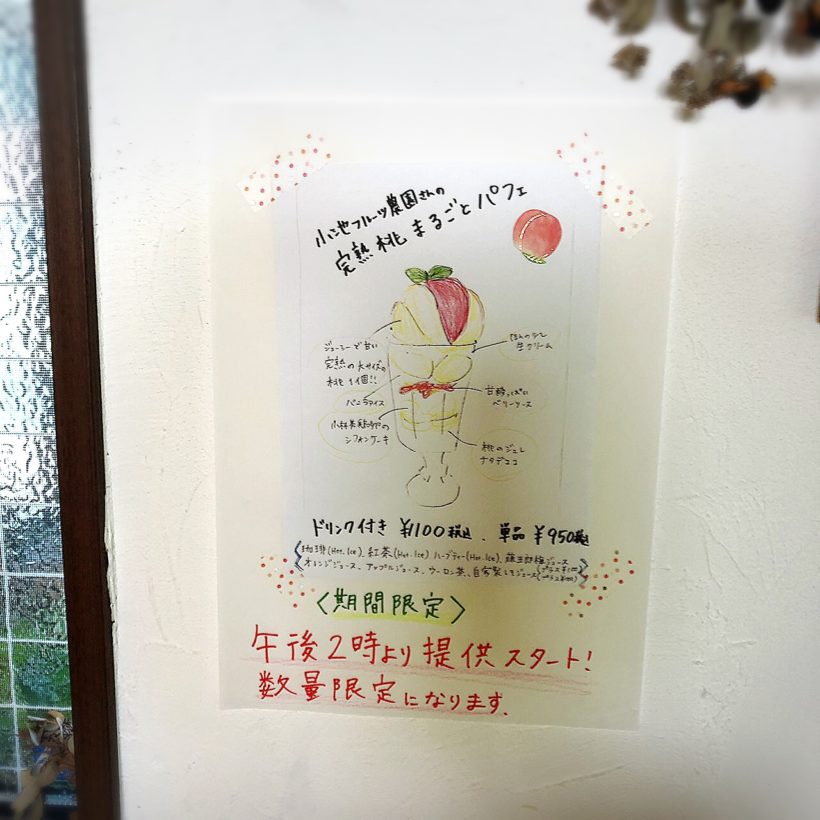 小池フルーツ農園さんの
完熟桃まるごとパフェ
ジューシーで甘い
完熟の大サイズの
桃 1個!!
バニラアイス
シフォンケーキ
ほんのり
生クリーム
甘酸っぱい
ベリーソース
桃のジュレ
ナタデココ
ドリンク付き ¥1100税込、単品 ¥950税込
珈琲(Hot.Ice)、紅茶(Hot.Ice) ハーブティー(Hot.Ice)、
オレンジジュース、アップルジュース、ウーロン茶、自家製しそジュース
〈期間限定〉
午後2時より提供スタート!
数量限定になります。